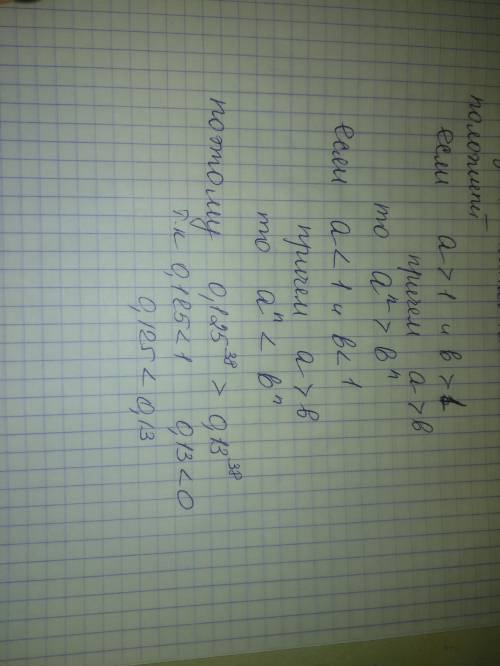 положит-
если a > 1 и в > 1
причем a > в
то aⁿ > вⁿ
если a < 1 и в < 1
причем a > в
то aⁿ < вⁿ
поэтому 0,125³⁸ > 0,13³⁸
т.к 0,125 < 1 0,13 < 0
0,125 < 0,13